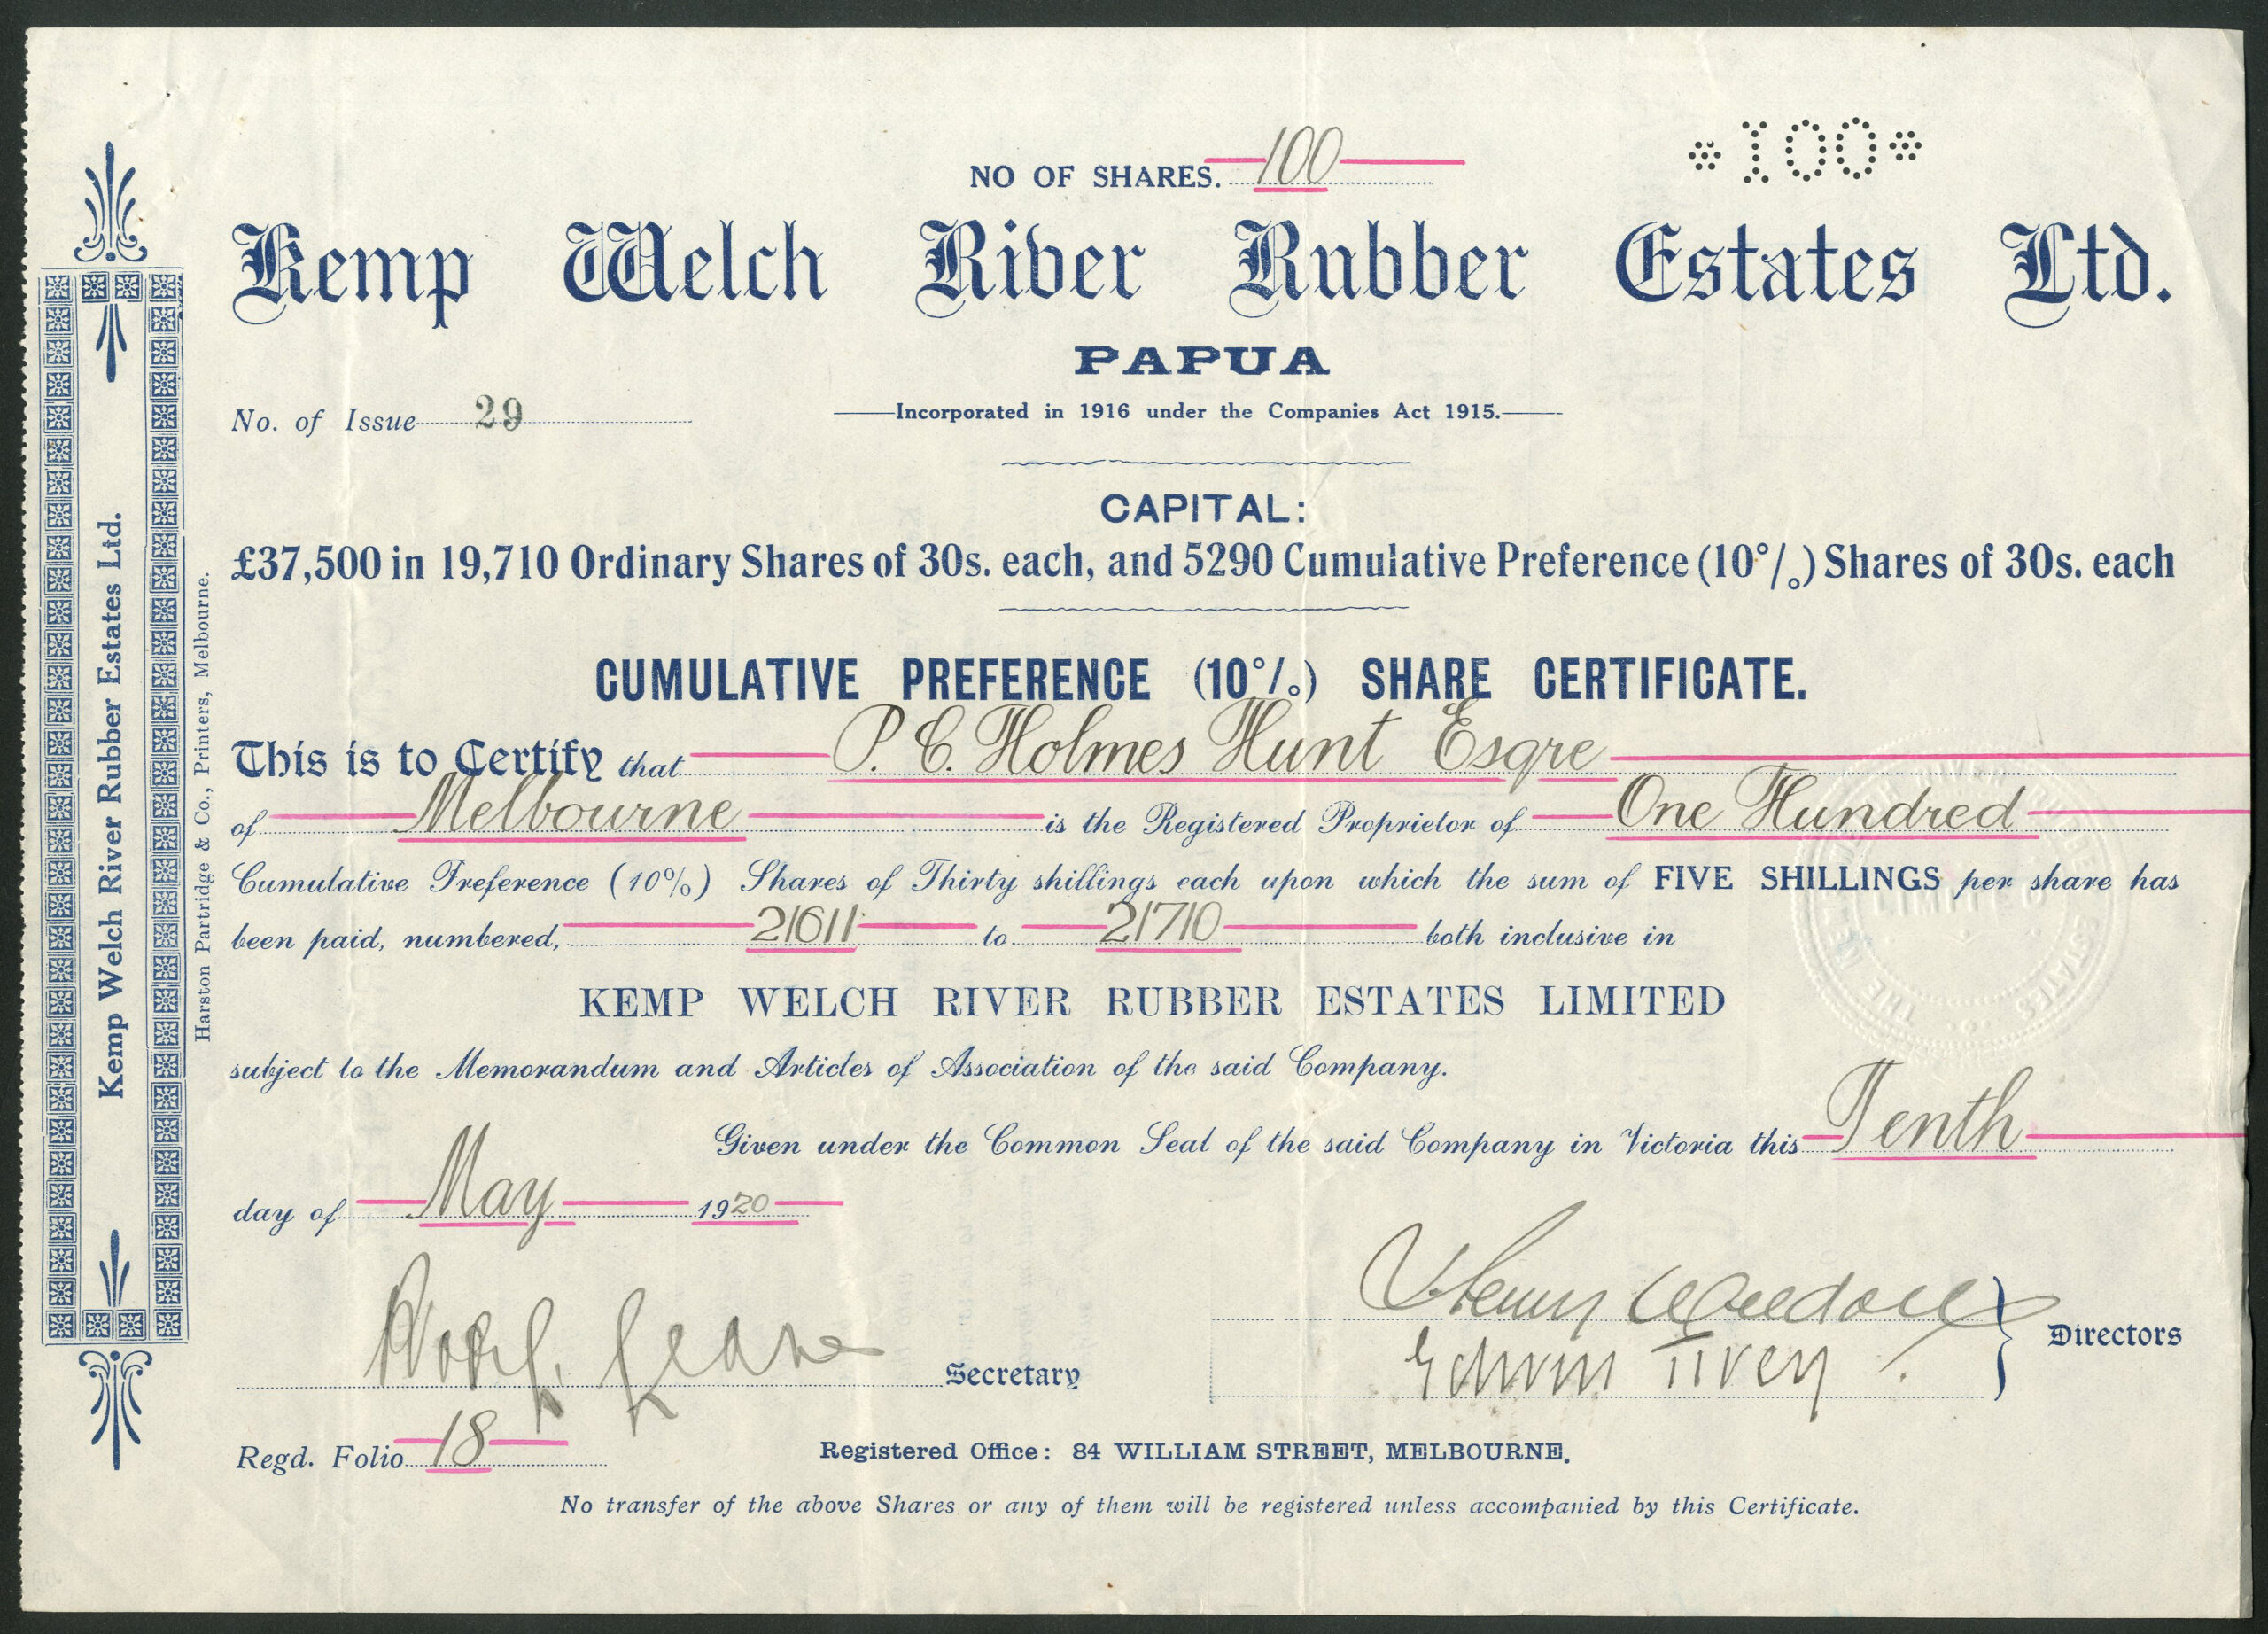 NO OF SHARES. 100
*100*
Kemp Welch River Rubber Estates Ltd.
PAPUA
No. of Issue 29
Incorporated in 1916 under the Companies Act 1915.
CAPITAL:
£37,500 in 19,710 Ordinary Shares of 30s. each, and 5290 Cumulative Preference (10%) Shares of 30s. each
CUMULATIVE PREFERENCE (10%) SHARE CERTIFICATE.
This is to Certify that P. C. Holmes Hunt Esqre
of Melbourne is the Registered Proprietor of One Hundred
Cumulative Preference (10%) Shares of Thirty shillings each upon which the sum of FIVE SHILLINGS per share has
been paid, numbered, 21611 to 21710 both inclusive in
KEMP WELCH RIVER RUBBER ESTATES LIMITED
subject to the Memorandum and Articles of Association of the said Company.
Given under the Common Seal of the said Company in Victoria this Tenth
day of May 1920
Henry
Edwin Tivey
Directors
Secretary
Regd. Folio 18
Registered Office: 84 WILLIAM STREET, MELBOURNE.
No transfer of the above Shares or any of them will be registered unless accompanied by this Certificate.
Kemp Welch River Rubber Estates Ltd.
Harston Partridge & Co., Printers, Melbourne.
THE
ESTATES
LIMITED